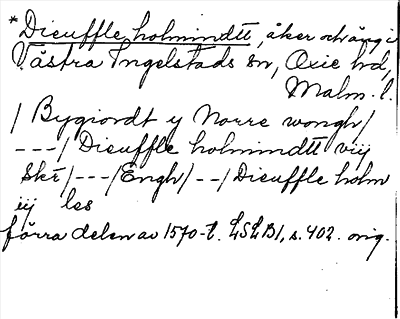 *Dieuffle holmindtt, åker och äng i
Västra Ingelstads sn, Oxie hd,
Malm. l.
/ Bygiordt y Norre wongh/
---/ Dieuffle holmindtt viij
Skr/---/Engh/--/Dieuffle holm
iij les
förra delen av 1570-t. LSLB1, s. 402. orig.